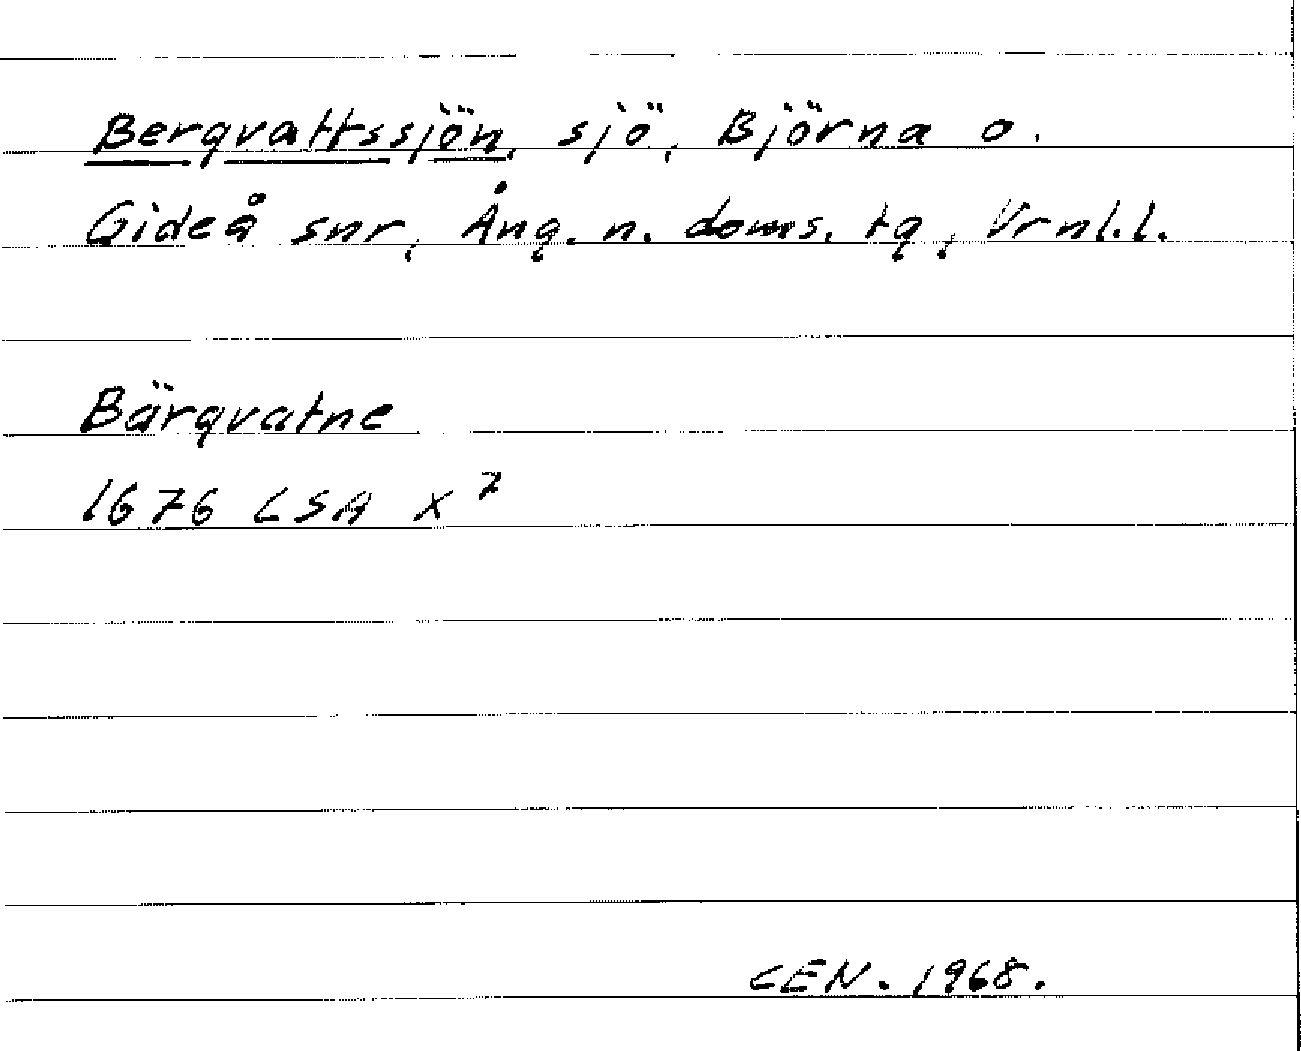 Bergvattssjön, sjö, Björna o.
Gideå snr, Ång. n. doms. tg, Vrnl.l.
Bärgvatne
1676 LSA X 7
CEN. 1968.